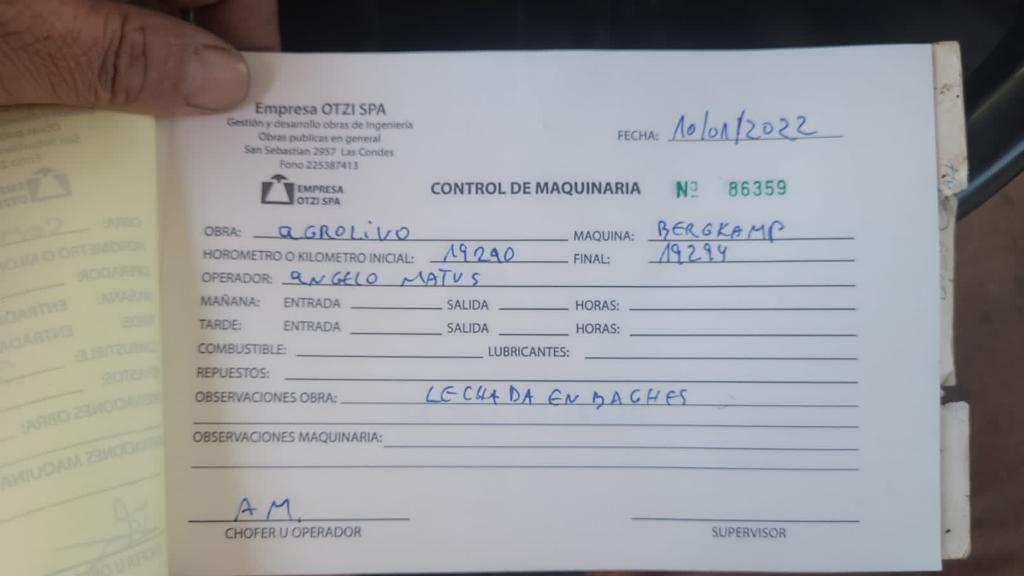 Empresa OTZI SPA
Gestión y desarrollo obras de Ingeniería
Obras publicas en general
San Sebastian 2957 Las Condes
Fono 225387413
EMPRESA
OTZI SPA
FECHA: 10/01/2022
CONTROL DE MAQUINARIA Nº 86359
OBRA: AGROLIVO MAQUINA: BERGKAMP
HOROMETRO O KILOMETRO INICIAL: 19290 FINAL: 19294
OPERADOR: ANGELO MATUS
MAÑANA: ENTRADA SALIDA HORAS:
TARDE: ENTRADA SALIDA HORAS:
COMBUSTIBLE: LUBRICANTES:
REPUESTOS:
OBSERVACIONES OBRA: LECHADA EN BACHES
OBSERVACIONES MAQUINARIA:
A M.
CHOFER U OPERADOR SUPERVISOR